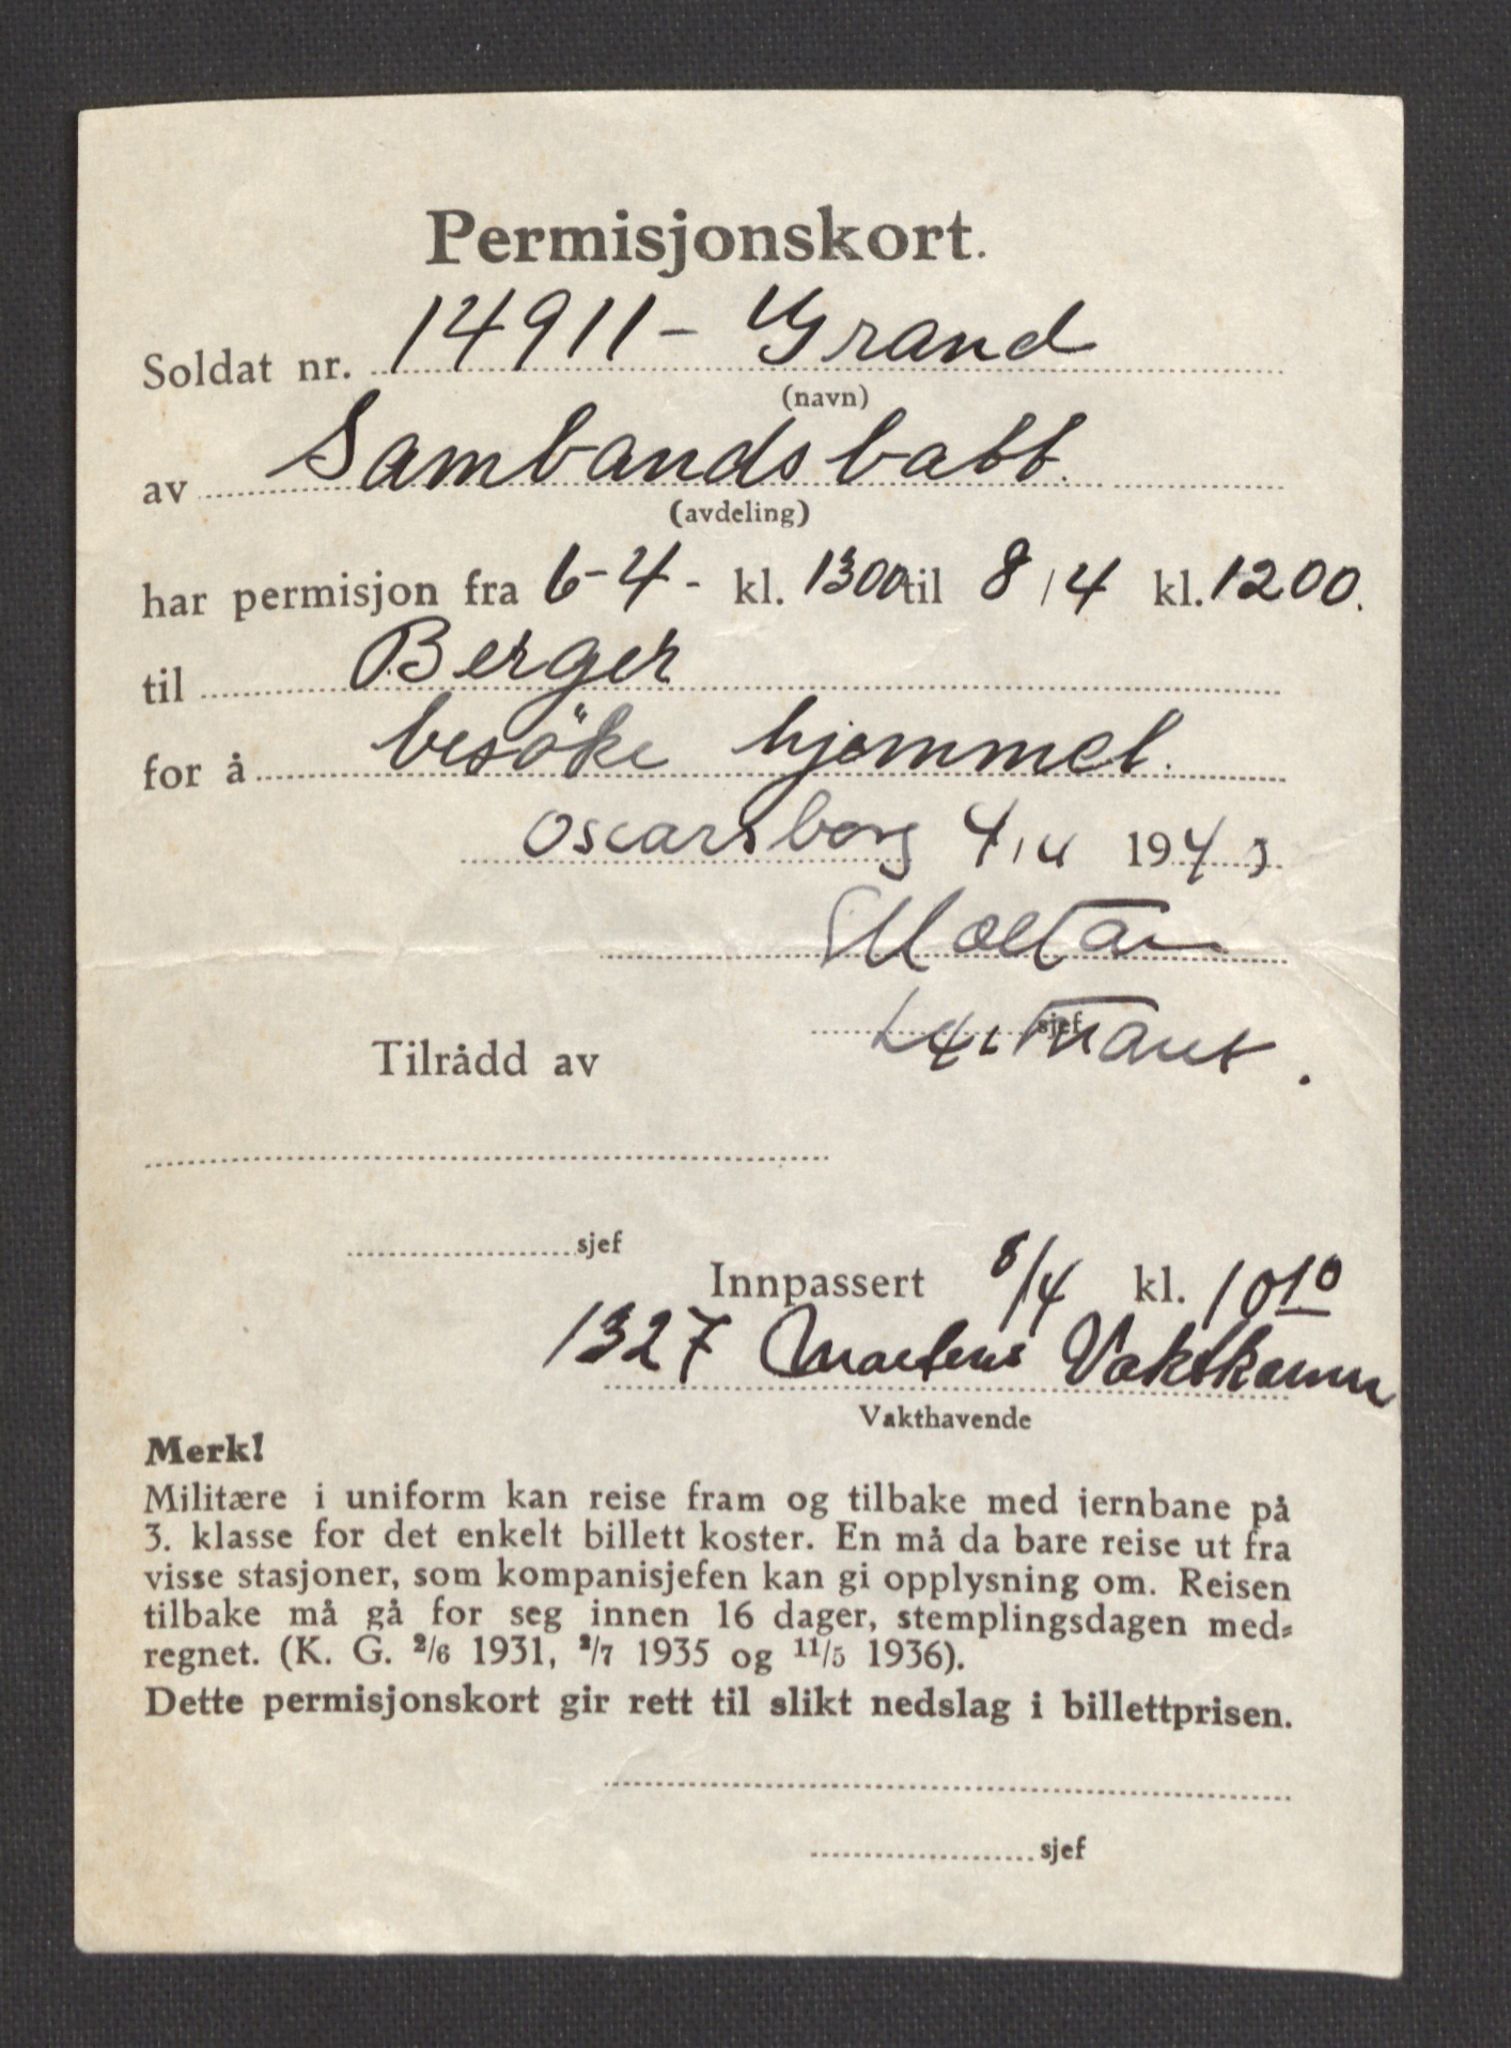 Permisjonskort.
Soldat nr. 14911 - Grand
(navn)
av Sambandsbatt.
(avdeling)
har permisjon fra 6-4- kl. 1300 til 8/4 kl. 1200.
til Berger
for å besöke hjemmet.
Oscarsborg 4/4 194
sjef
Tilrådd av
sjef
Innpassert 8/4 kl. 1010
1327 Martens
Vakthavende
Merk!
Militære i uniform kan reise fram og tilbake med jernbane på
3. klasse for det enkelt billett koster. En må da bare reise ut fra
visse stasjoner, som kompanisjefen kan gi opplysning om. Reisen
tilbake må gå for seg innen 16 dager, stemplingsdagen med-
regnet. (K. G. 2/6 1931, 2/7 1935 og 11/5 1936).
Dette permisjonskort gir rett til slikt nedslag i billettprisen.
sjef